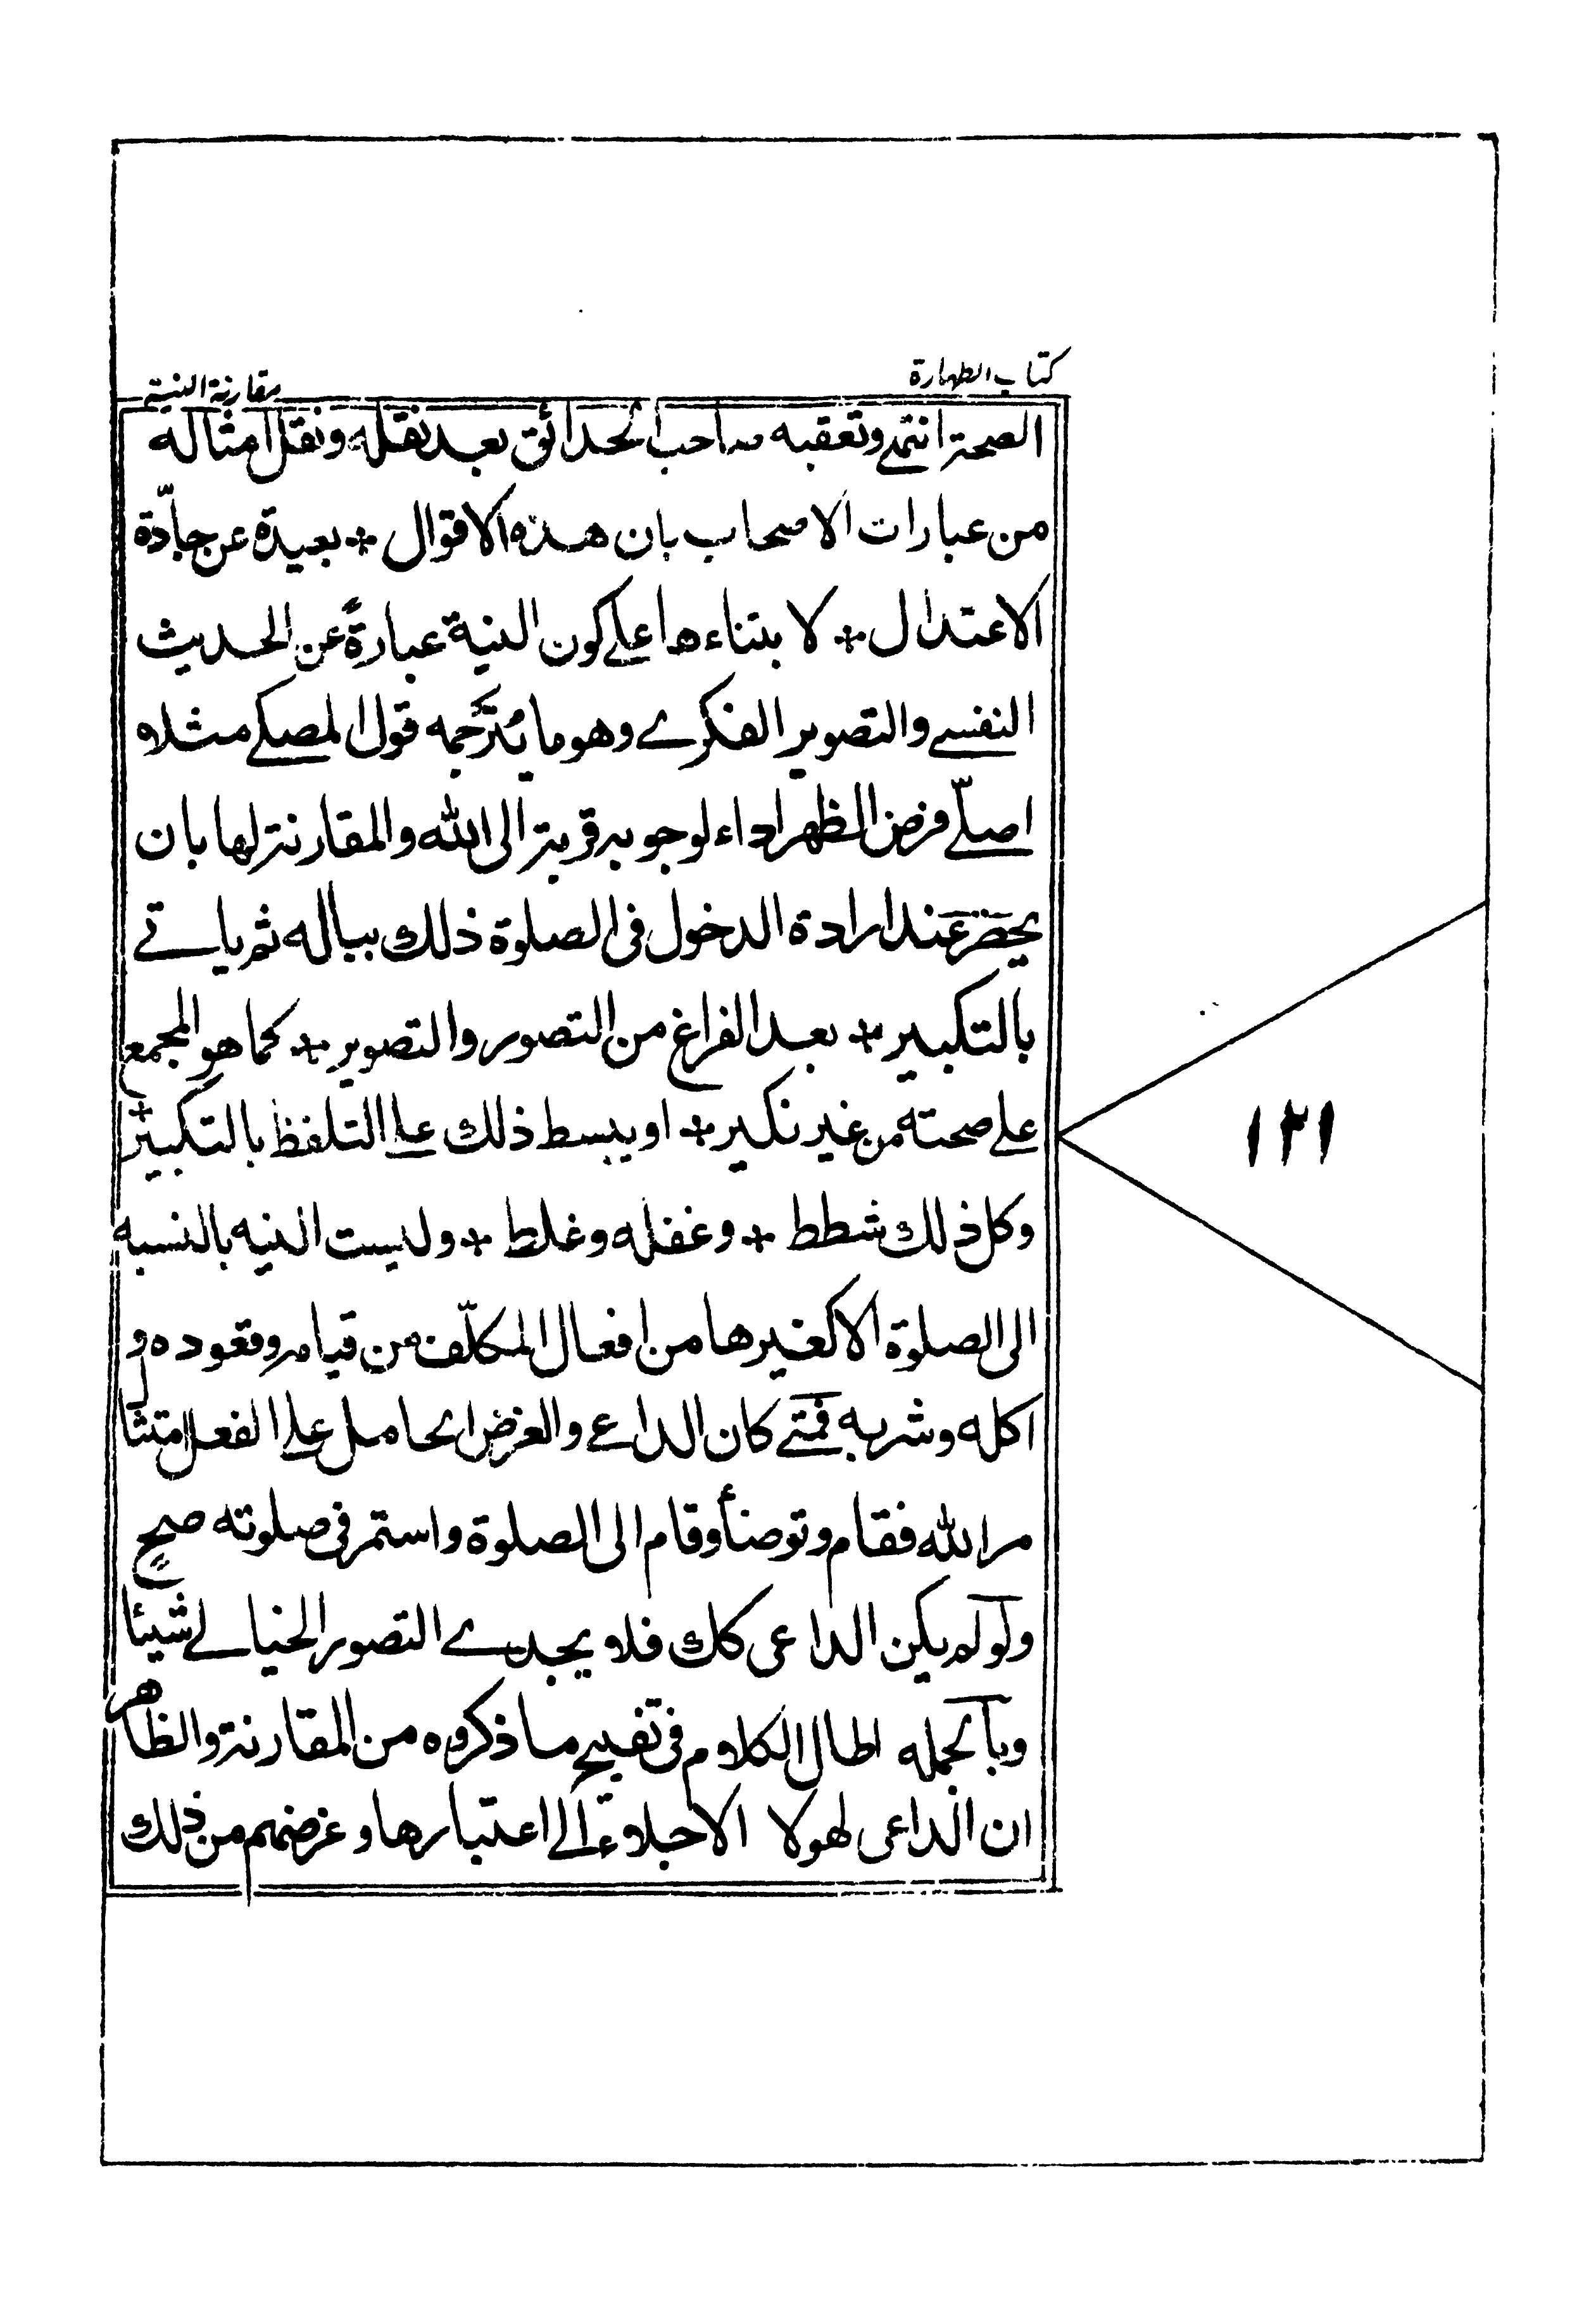 كتاب الطهارة
مقارنة النية
الصحة انتهى وتعقبه صاحب الحدائق بعد نقله ونقل امثاله
من عبارات الاصحاب بان هذه الاقوال ٭ بعيدة عن جادّة
الاعتدال ٭ لا بتناءها على كون النية عبارةً عن الحديث
النفسي والتصوير الفكري وهو ما يُتَرجمه قول المصلي مثلا
اصلّي فرض الظهر اداء لوجوبه قربة الى الله والمقارنة لها بان
يحضر عند ارادة الدخول فى الصلوة ذلك بباله ثم ياتي
بالتكبير ٭ بعد الفراغ من التصور والتصوير ٭ كما هو المجمع
على صحته من غير نكير ٭ او يبسط ذلك على التلفظ بالتكبير ٭
وكل ذلك شطط ٭ وغفله وغلط ٭ وليست النيه بالنسبه
الى الصلوة الا كغيرها من افعال المكلّف من قيامه وقعوده و
اكله وشربه فمتى كان الداعي والغرض الحامل على الفعل امتثا
مر الله فقام وتوضأ وقام الى الصلوة واستمر فى صلوته صح
ولو لم يكن الداعى كك فلا يجدي التصور الخيالي شيئا
وبالجمله اطال الكلام فى تقبيح ما ذكروه من المقارنة والظاهر
ان الداعى لهولا الاجلاء الى اعتبارها وغرضهم من ذلك
١٢١